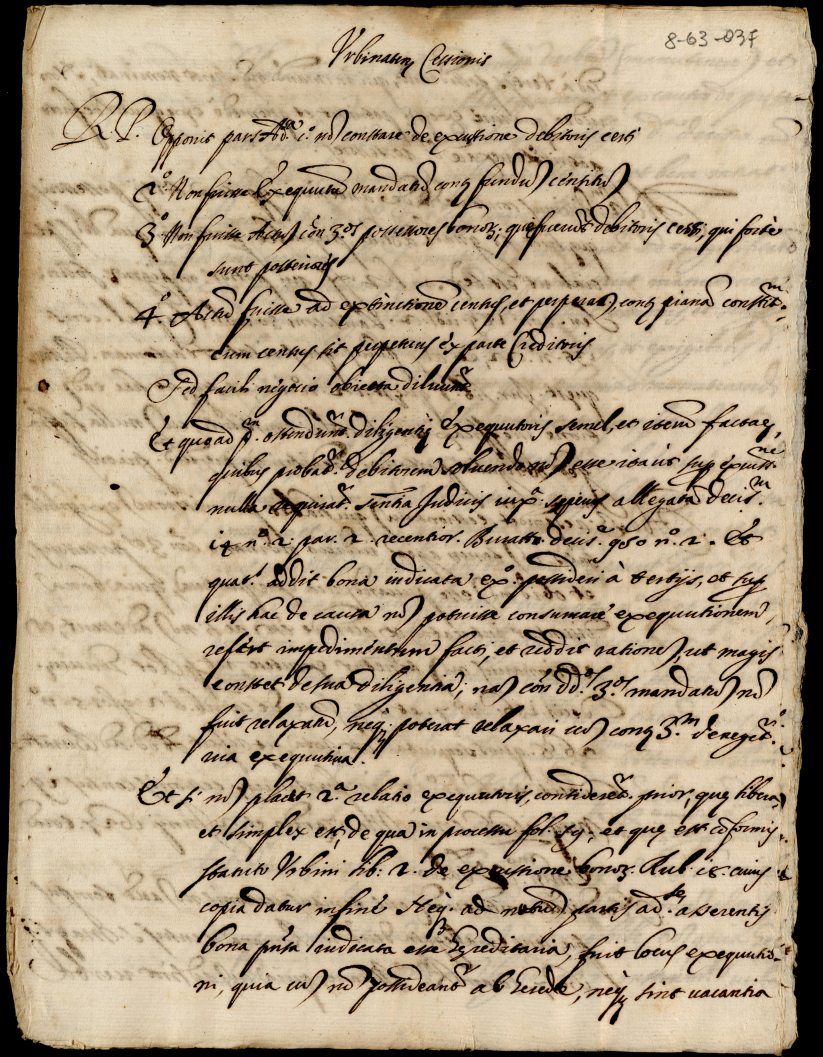 8-63-037
Urbinaten Cessionis
R P. Opponit pars Ad.ª 1.º nō constare de excussione debitoris cessi
2.º Non fuisse exequutū mandatū contʒ fundū censitū
3.º Non fuisse Actū cōn 3.os possessores bonoʒ; que fuerūt debitoris cessi, qui forte
sunt posteriores
4.º Actū fuisse ad extinctionē census, et perperā, contʒ pianā constit.m
cum census sit perpetuus ex parte Creditoris
Sed facili negotio obiecta diluunt.r
Et quoad p.m ostendunt.r diligentiȩ exequutoris, semel, et iterū factȩ,
quibus probat.r debitorem solvendo nō esse ita ut sup excuss.ne
nulla requirat.r sententia Judicis iuxª sepius allegatā decis.m
14 n.º 2. par. 2. recentior. Buratt. decis.e 950 n.º 2. Et
quat.s addit bona indicata ex.º possideri à tertijs, et sup
illis hac de causa nō potuisse consumare exequutionem,
refert impedimentum facti, et reddit rationē, ut magis
constet de sua diligentia; nā cōn dd.os 3.os mandatū nō
fuit relaxatū, neqʒ poterat relaxari cū contʒ 3.m denegēt.r
via exequutiva.
Et si nō placet 2.ª relatio exequutoris, consideret.r prior, quȩ libera,
et simplex est, de qua in processu fol. 19. et quȩ est cōformis
statuto Urbini lib: 2. de excussione bonoʒ. Rub. 18. cuius
copia datur in fine Neq. ad motivū partis ad.sȩ asserentis
bona pñta indicata esse hereditaria, fuit locus exequutio-
ni, quia cū nō possideant.r ab herede, neqʒ sint vacantia